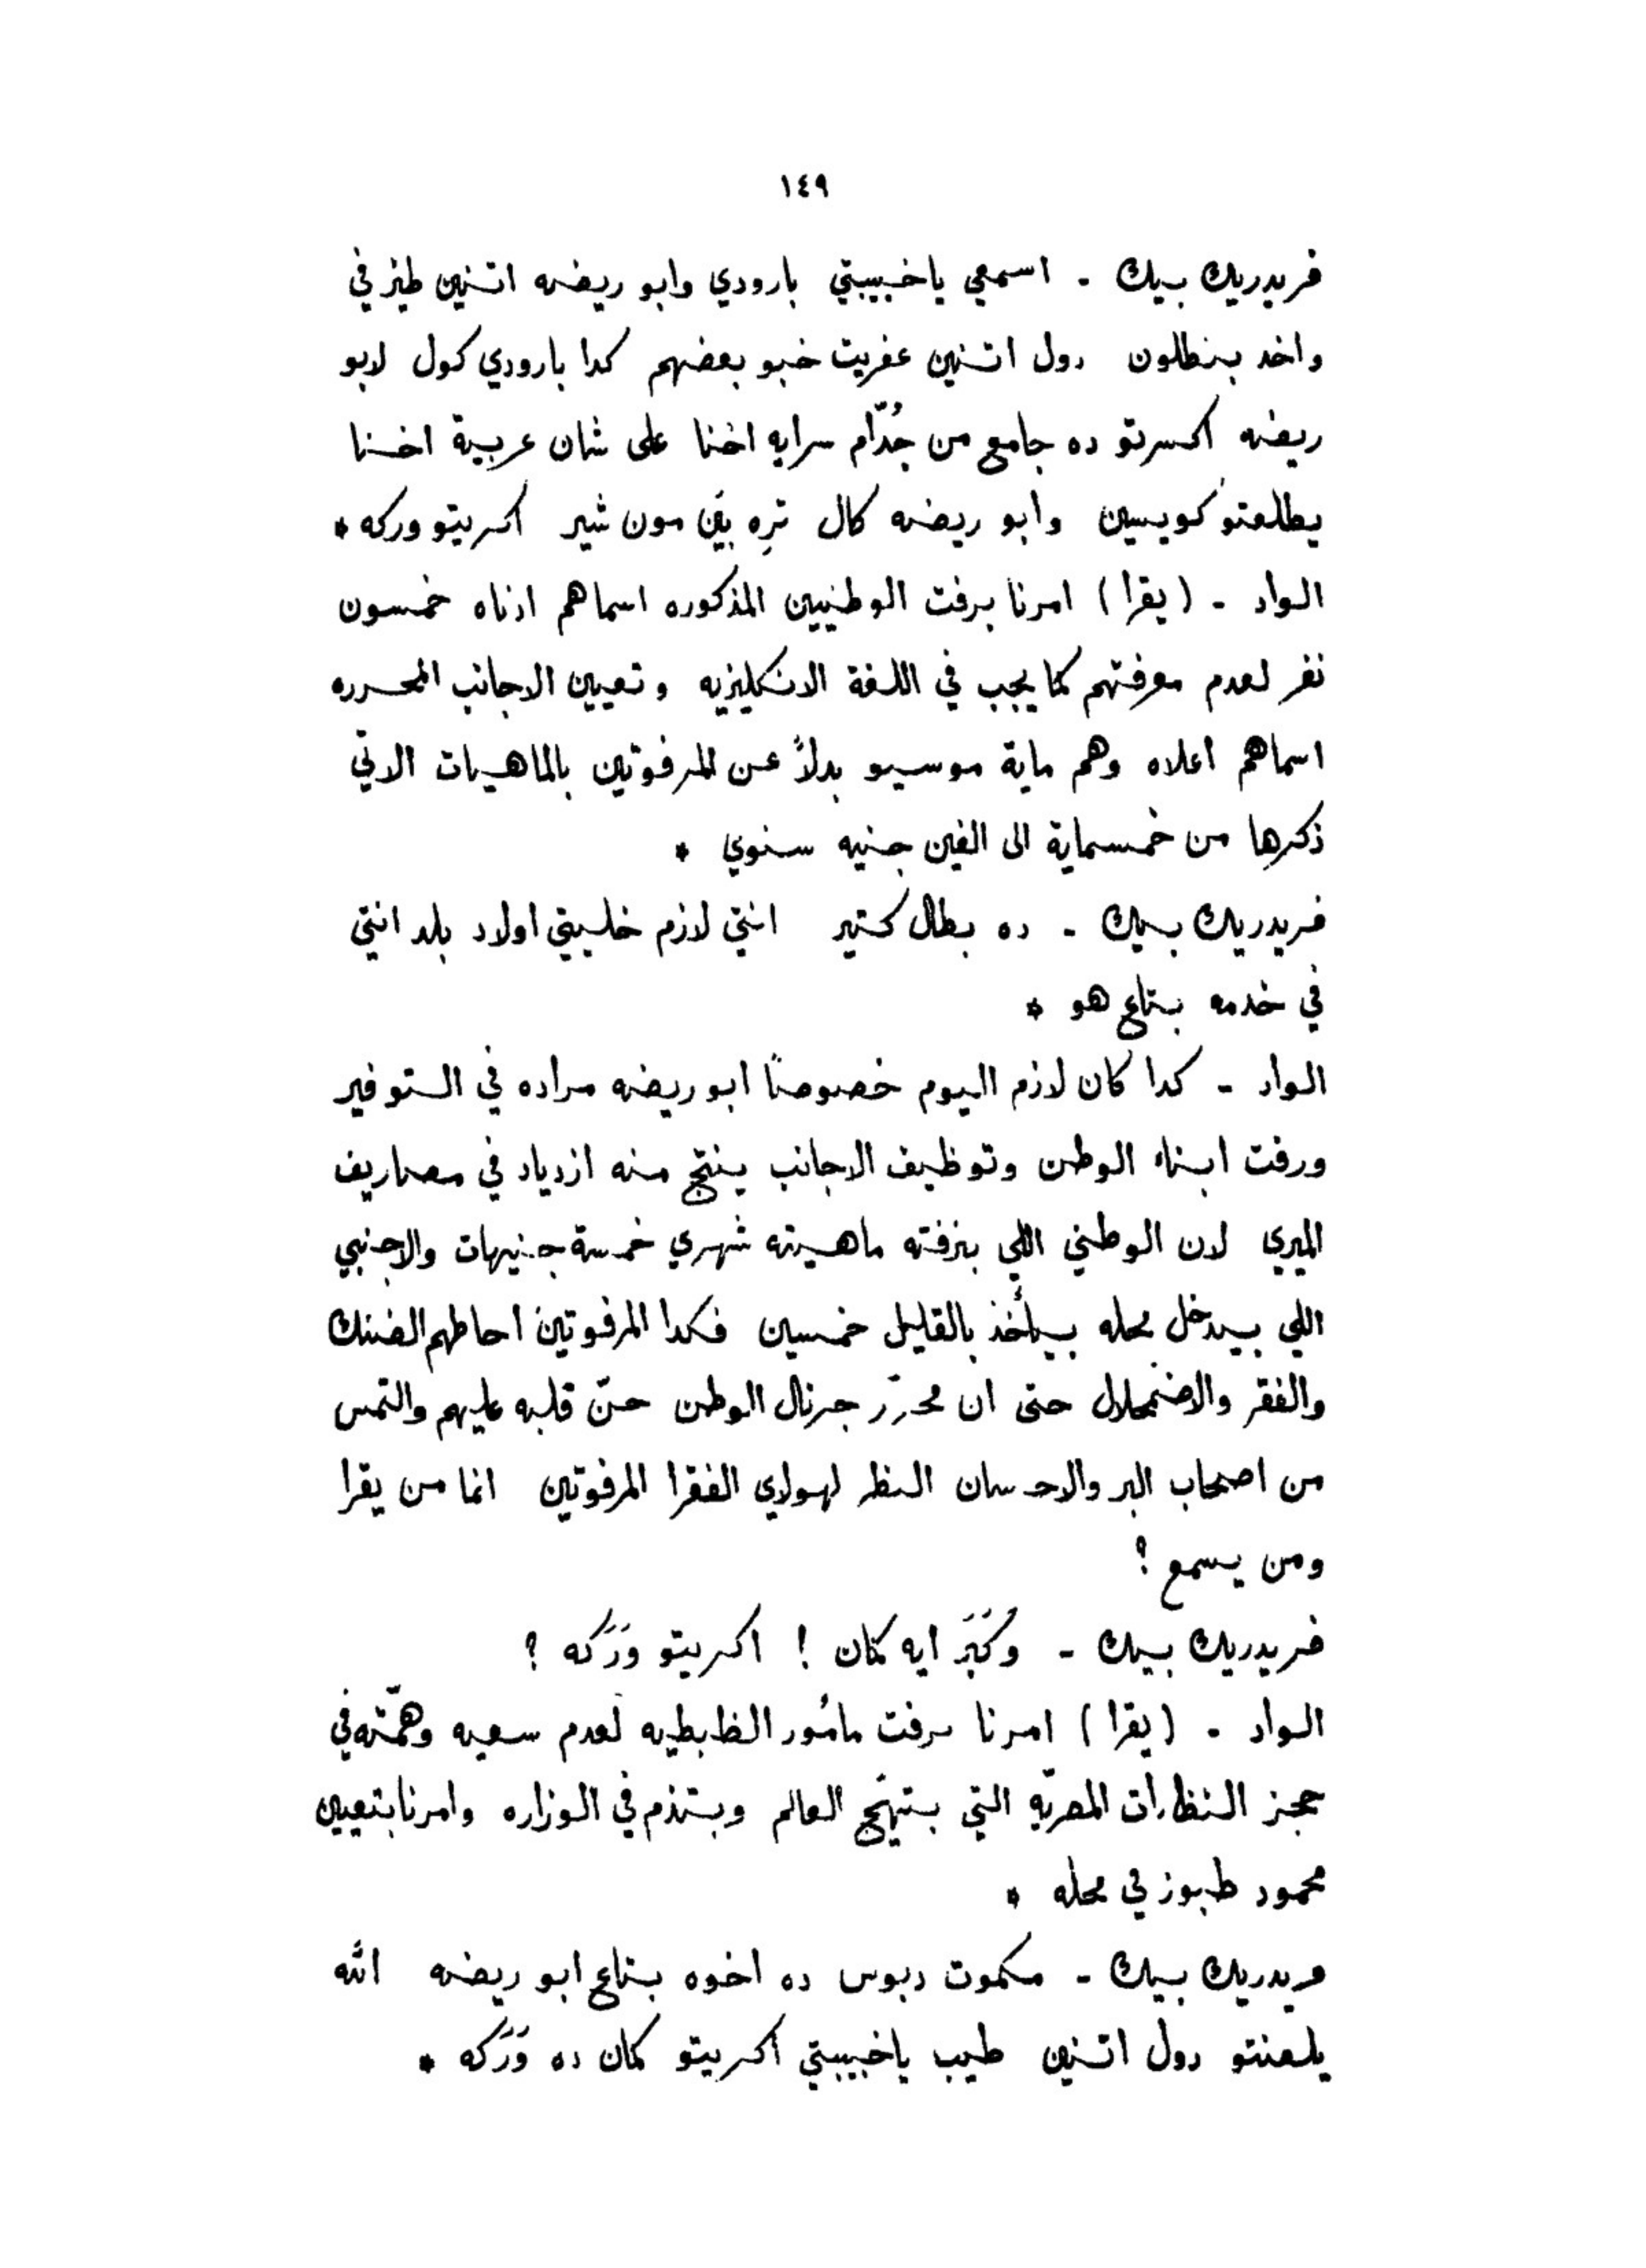 ١٤٩
فريدريك بيك - اسمعي ياخبيبتي بارودي وابو ريضه اتنين طيز في
واخد بنطلون دول اتنين عفريت خبو بعضهم كدا بارودي كول لابو
ريضه اكسرتو ده جامع من جُدّام سرايه اخنا على شان عربية اخنا
يطلعتو كويسين وابو ريضه كال تره بيَن مون شير اكريتو وركه *
الواد - (يقرا) امرنا برفت الوطنيين المذكوره اسماهم ادناه خمسون
نفر لعدم معرفتهم كما يجب في اللغة الانكليزيه وتعيين الاجانب المحرره
اسماهم اعلاه وهم ماية موسيو بدلاً عن المرفوتين بالماهيات الاتي
ذكرها من خمسماية الى الفين جنيه سنوي *
فريدريك بيك - ده بطال كتير انتي لازم خليتي اولاد بلد انتي
في خدمه بتاع هو *
الواد - كدا كان لازم اليوم خصوصًا ابو ريضه مراده في التوفير
ورفت ابناء الوطن وتوظيف الاجانب ينتج منه ازدياد في مصاريف
الميري لان الوطني اللي بنرفته ماهيته شهري خمسة جنيهات والاجنبي
اللي بيدخل محله بيأخذ بالقليل خمسين فكدا المرفوتين احاطهم الضنك
والفقر والاضمحلال حتى ان محرّر جرنال الوطن حنّ قلبه عليهم والتمس
من اصحاب البر والاحسان النظر لهولاي الفقرا المرفوتين انما من يقرا
ومن يسمع ؟
فريدريك بيك - وُكَبَر ايه كمان ! اكريتو وَرَكه ؟
الواد - (يقرا) امرنا برفت مامُور الظبطيه لعدم سعيه وهمّته في
حجز النظارات المصريّه التي بتهيّج العالم وبتذم في الوزاره وامرنا بتعيين
محمود طبوز في محله *
فريدريك بيك - مكموت دبوس ده اخوه بتاع ابو ريضه الله
يلعنتو دول اتنين طيب ياخبيبتي اكريتو كمان ده وَرَكه *